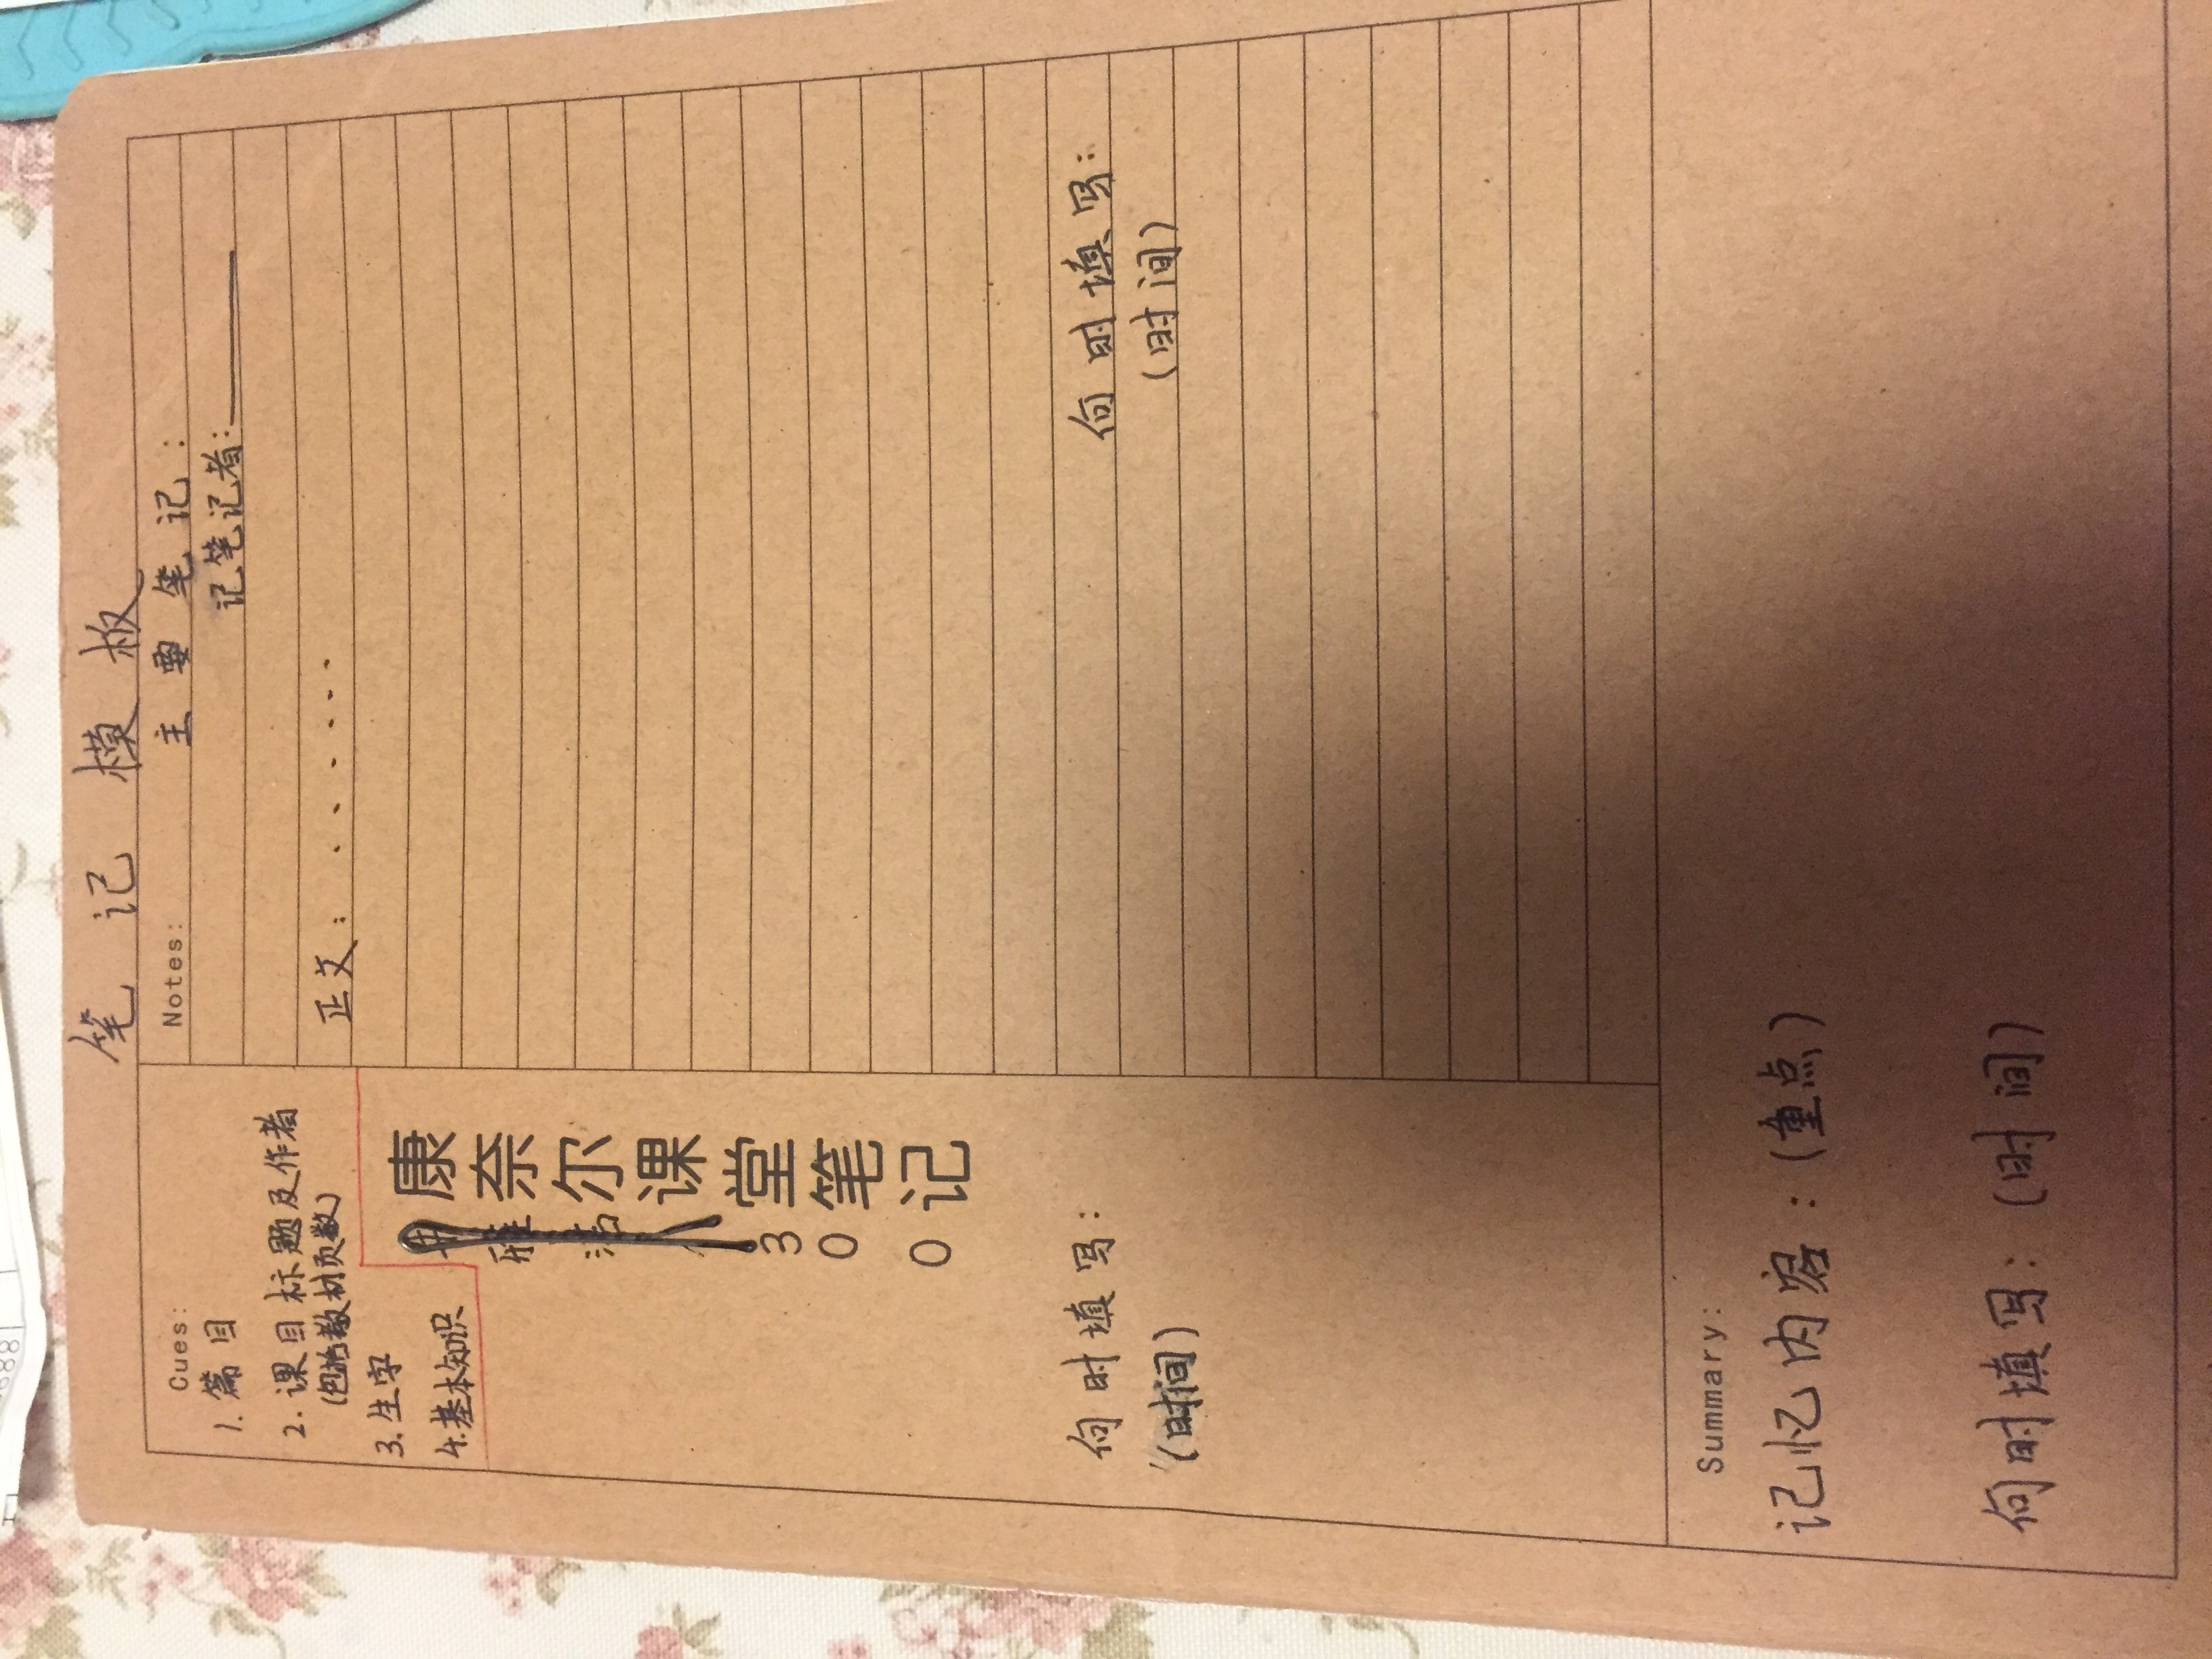 笔记模板
Cues:
1. 篇目
2. 课目标题及作者
(包括教材页数)
3. 生字
4. 基本知识
康奈尔课堂笔记
300
何时填写:
(时间)
Notes: 主要笔记:
记笔记者:
正文: ......
何时填写:
(时间)
Summary:
记忆内容: (重点)
何时填写: (时间)